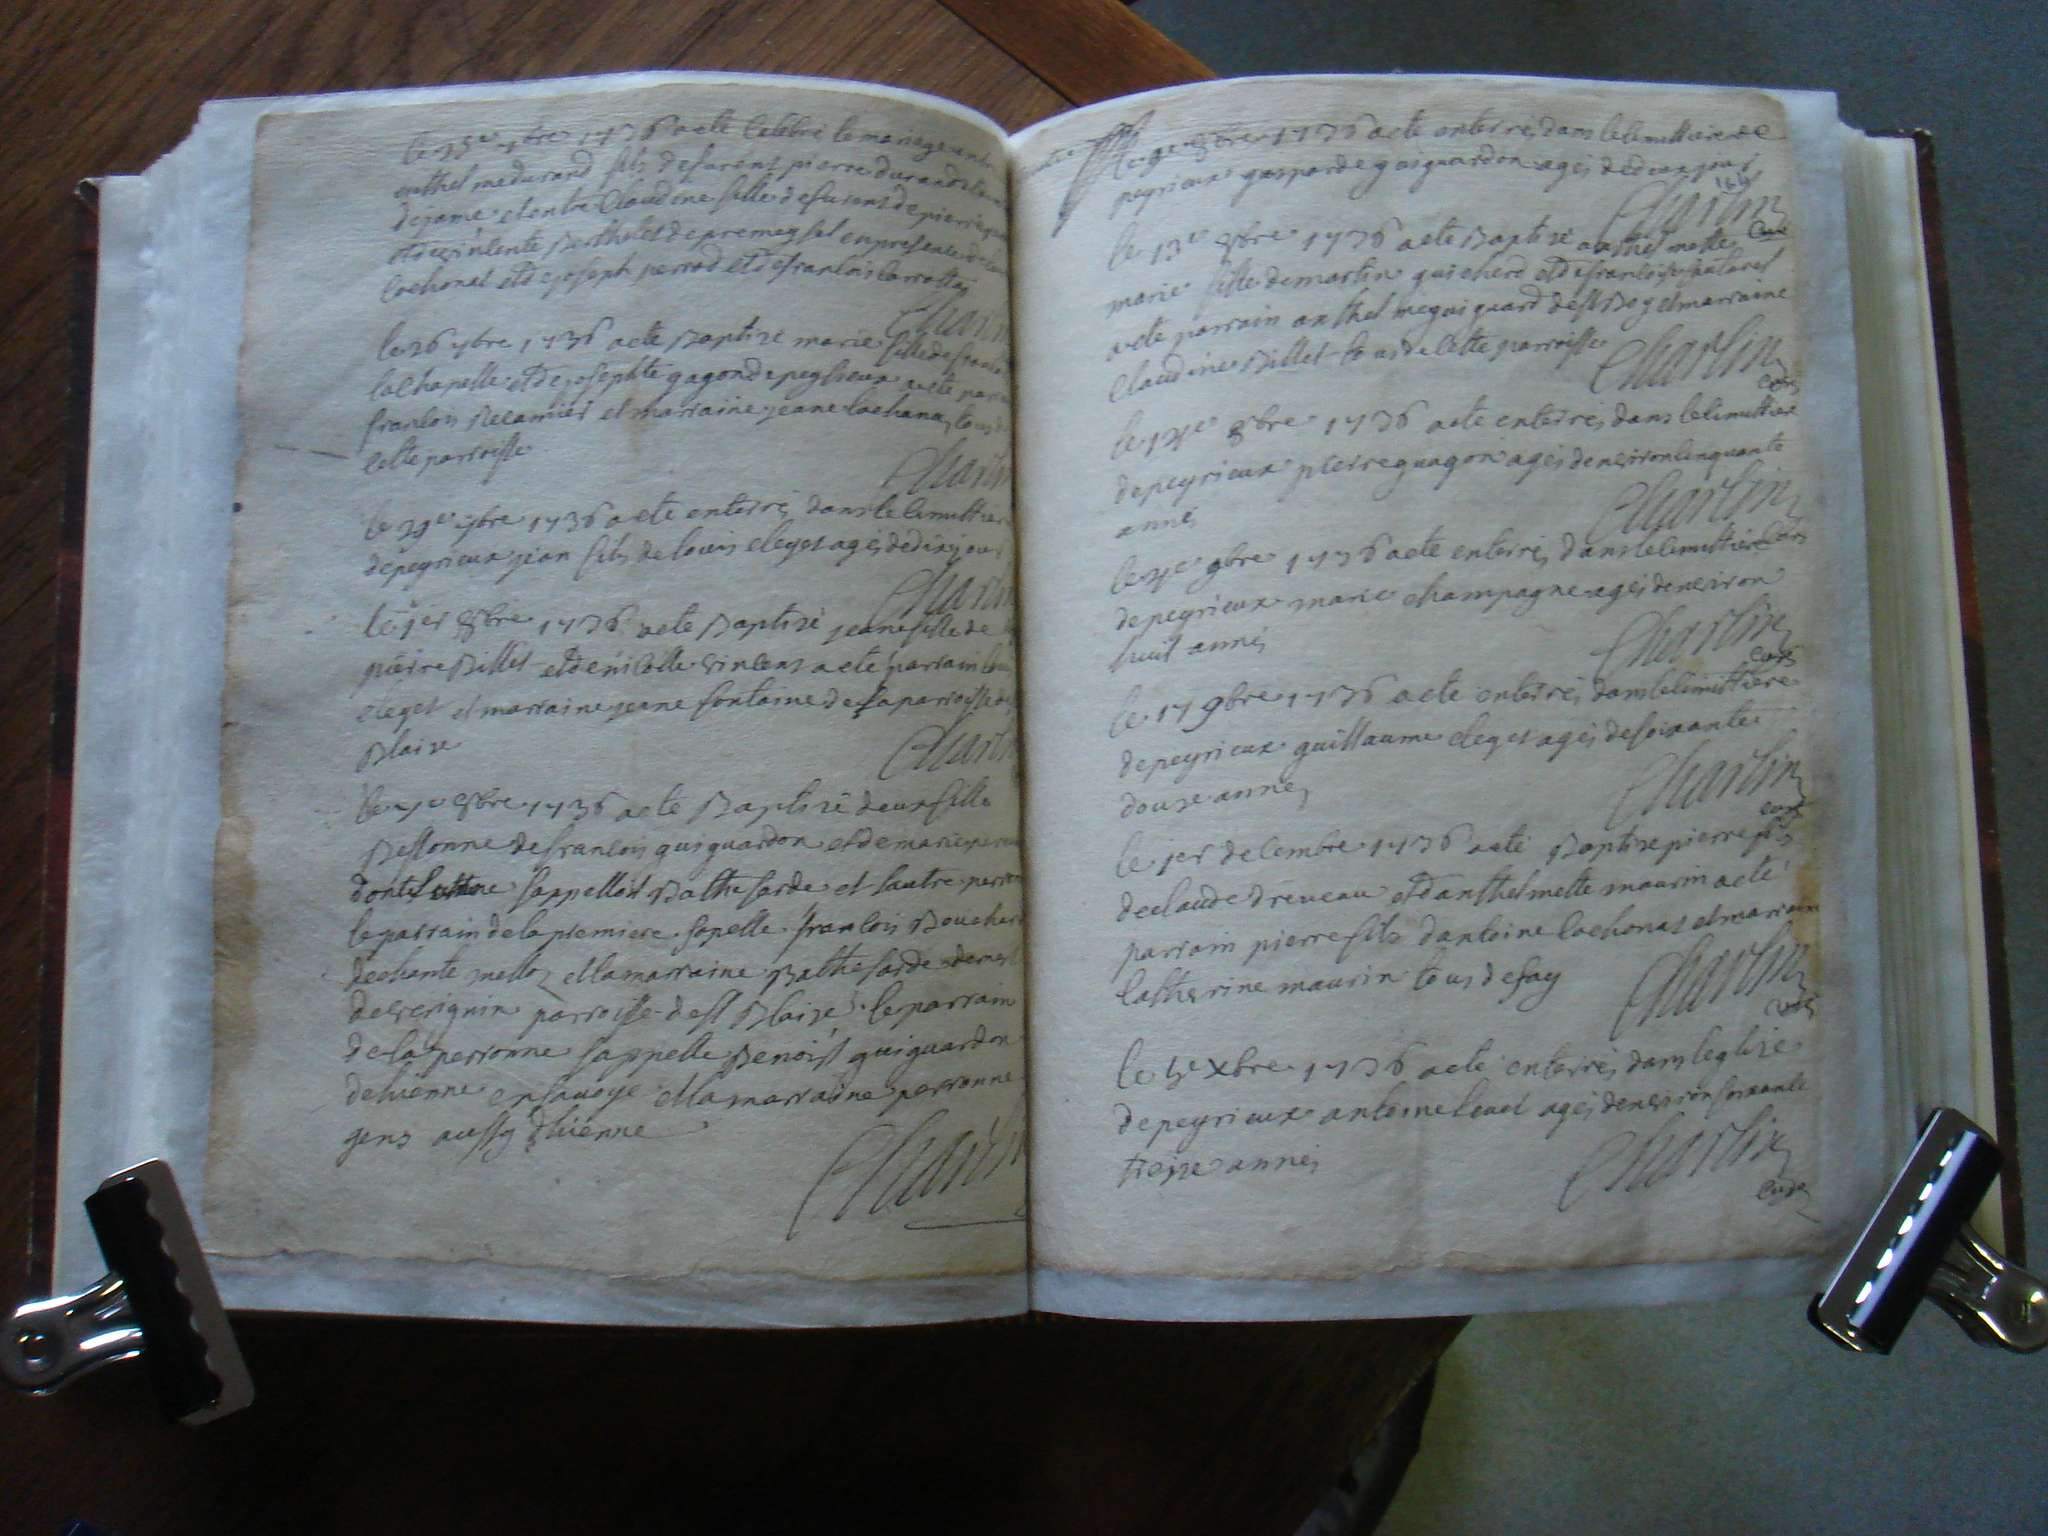 le 25e 7bre 1736 a ete celebré le mariage entre
anthelme durand fils de furent pierre durand
dejame et entre Claudine fille de furent de pierre
et de vintente Berthelet de premeysel en presence de
lachonat et de joseph perrod et de francois Carrottai
Charlin
le 26 7bre 1736 a ete Baptizé marie fille de
lachapelle et de josephte gagon de peyrieux a ete
francois Recamier et marraine jeane lachana tous de
cette parroisse
Charlin
le 29e 7bre 1736 a ete enterré dans le cimittiere
de peyrieux jean fils de louis eleget agé de dix jour
Charlin
le jer 8bre 1736 a ete Baptizé jeane fille de
pierre Billet et de nicolle vincent a ete parrain
eleget et marraine jeane fontaine de la parroisse de
Blaize
Charlin
le 4e 8bre 1736 a ete Baptizé deux fille
Bessonne de francois guiguardon et de marie
dont l'une sappelloit Balthesarde et lautre
le parrain de la premiere sapelle francois Bouchard
de chante mello et la marraine Balthesarde
de verignin parroisse de st Blaize le parrain
de la perronne sappelle Benoist guiguardon
dehienne en savoye et la marraine perronne
gens aussy dhienne
Charlin
le 9e 8bre 1736 a ete enterré dans le cimittiere de
peyrieux gasparde guiguardon agé de deux jour
166
Charlin
Curé
le 13e 8bre 1736 a ete Baptizé anthelmette
marie fille de martin guicherd et de francoise
a ete parrain anthelme guiguard de st Boy et marraine
Claudine Billet tous de cette parroisse
Charlin
Curé
le 14e 8bre 1736 a ete enterré dans le cimittiere
de peyrieux pierre guagon agé denviron cinquante
anné
Charlin
Curé
le 4e 9bre 1736 a ete enterré dans le cimittiere
de peyrieux marie champagne agé denviron
huit anné
Charlin
Curé
le 17 9bre 1736 a ete enterré dans le cimittiere
de peyrieux guillaume eleget agé de soixante
douze anné
Charlin
Curé
le jer decembre 1736 a eté Baptize pierre fils
de claude dreveau et danthelmette maurin a eté
parrain pierre fils dantoine lachonat et marraine
Catherine maurin tous de fay
Charlin
Curé
le 5e Xbre 1736 a eté enterré dans leglize
de peyrieux antoine agé denviron soixante
treize anné
Charlin
Curé